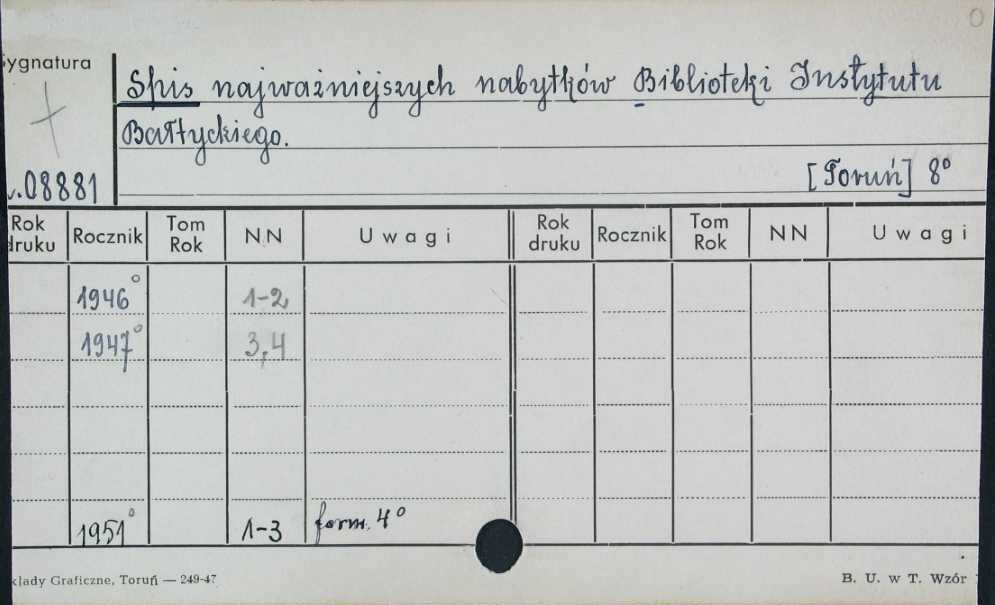 0
ygnatura
Spis najważniejszych nabytków Biblioteki Instytutu
Bałtyckiego.
08881
[Toruń] 8°
Rok druku Rocznik Tom Rok NN Uwagi Rok druku Rocznik Tom Rok NN Uwagi
1946° 1-2
1947° 3,4
1951° 1-3 form. 4°
kłady Graficzne, Toruń — 249-47
B. U. w T. Wzór